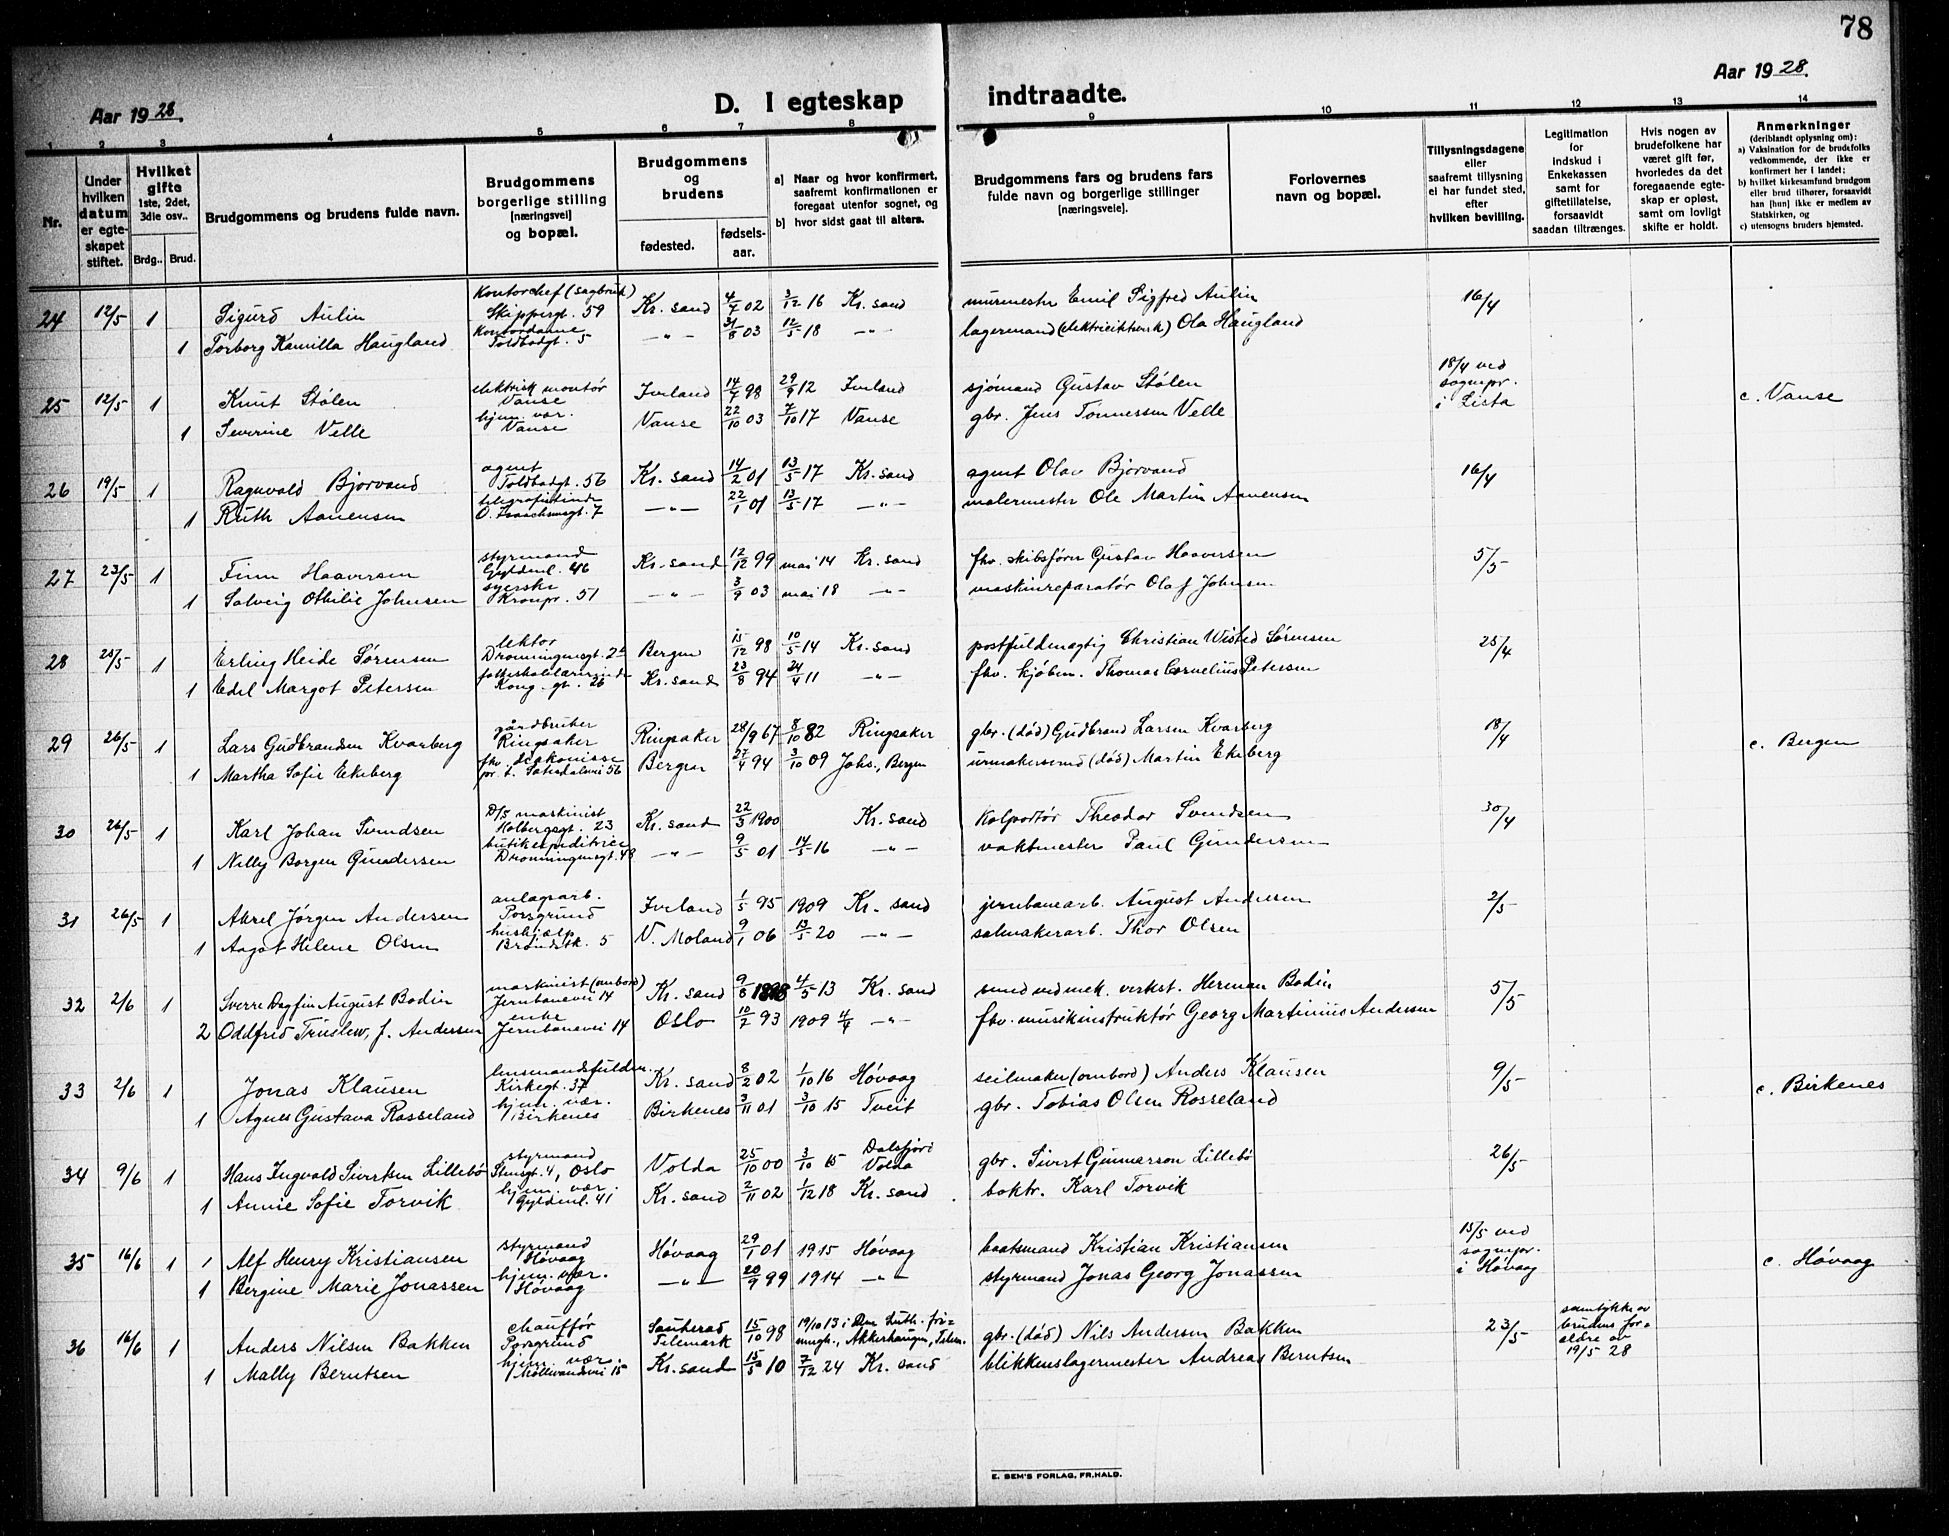 78
Aar 1928.
D. I egteskap indtraadte.
Aar 1928.
1 2 3 4 5 6 7 8 9 10 11 12 13 14
Nr.
Under hvilken datum er egteskapet stiftet.
Hvilket gifte 1ste, 2det, 3die osv..
Brdg.. Brud.
Brudgommens og brudens fulde navn.
Brudgommens borgerlige stilling [næringsvei] og bopæl.
Brudgommens og brudens
fødested. fødsels-aar.
a] Naar og hvor konfirmert, saafremt konfirmationen er foregaat utenfor sognet, og
b] hvor sidst gaat til alters.
Brudgommens fars og brudens fars fulde navn og borgerlige stillinger [næringsveie].
Forlovernes navn og bopæl.
Tillysningsdagene eller saafremt tillysning ei har fundet sted, efter hvilken bevilling.
Legitimation for indskud i Enkekassen samt for giftetillatelse, forsaavidt saadan tiltrænges.
Hvis nogen av brudefolkene har været gift før, hvorledes da det foregaaende egteskap er opløst, samt om lovligt skifte er holdt.
Anmerkninger (deriblandt oplysning om):
a) Vaksination for de brudefolks vedkommende, der ikke er konfirmert her i landet;
b) hvilket kirkesamfund brudgom eller brud tilhører, forsaavidt han [hun] ikke er medlem av Statskirken, og
c) utensogns bruders hjemsted.
24 12/5 1 Sigurd Aulin Kontorchef (sagbruk) Skippergt. 59 Kr. sand 4/7 02 3/12 16 Kr. sand murmester Emil Sigfred Aulin 16/4
1 Torborg Kamilla Haugland Kontordame Toldbodgt. 5 —"— 31/8 03 12/5 18 —"— lagermand (elektricitetsverk) Ola Haugland
25 12/5 1 Knut Stølen elektrisk montør Vanse Iveland 14/7 98 29/9 12 Iveland sjømand Gustav Stølen 18/4 ved sognepr. i Lista c. Vanse
1 Severine Velle hjem. vær. Vanse Vanse 22/10 03 7/10 17 Vanse gbr. Jens Tønnessen Velle
26 19/5 1 Ragnvald Bjorvand agent Toldbodgt. 56 Kr. sand 14/2 01 13/5 17 Kr. sand agent Olav Bjorvand 16/4
1 Ruth Aanensen telegrafistinde 7 —"— 22/1 01 13/5 17 —"— malermester Ole Martin Aanensen
27 23/5 1 Finn Haaversen styrmand Gyldenl. 46 Kr. sand 12/12 99 mai '14 Kr. sand fhv. skibsfører Gustav Haaversen 5/5
1 Solveig Othilie Johnsen syerske Kronpr. 51 —"— 3/9 03 mai '18 —"— maskinreparatør Olaf Johnsen
28 25/5 1 Erling Heide Sørensen lektor Dronningensgt. Bergen 15/12 98 10/5 14 Kr. sand postfuldmægtig Christian Wisted Sørensen 25/4
1 Edel Margot Petersen folkeskolelærerinde Kong. gt. 26 Kr. sand 23/8 94 24/4 11 —"— fhv. kjøbm. Thomas Cornelius Petersen
29 26/5 1 Lars Gudbrandsen Kvarberg gårdbruker Ringsaker Ringsaker 28/9 67 8/10 82 Ringsaker gbr. (død) Gudbrand Larsen Kvarberg 18/4 c. Bergen
1 Martha Sofie Ekeberg fhv. diakonisse pr. t. Setesdalsvei 56 Bergen 27/4 94 3/10 09 Johs., Bergen urmakersvend (død) Martin Ekeberg
30 26/5 1 Karl Johan Svendsen D/S maskinist Holbergsgt. 23 Kr. sand 22/3 1900 Kr. sand Kolportør Theodor Svendsen 30/4
1 Nelly Borgen Gundersen butikexpeditrice Dronningensgt. 48 —"— 9/5 01 14/5 16 —"— vaktmester Paul Gundersen
31 26/5 1 Aksel Jørgen Andersen anlægsarb. Porsgrund Iveland 1/5 95 1909 Kr. sand jernbanearb. August Andersen 2/5
1 Aagot Helene Olsen hushjælp 5 V. Moland 9/1 06 13/5 20 —"— salmakerarb. Thor Olsen
32 2/6 1 Sverre Dagfin August Bodin maskinist (ombord) Jernbanevei 14 Kr. sand 9/8 1898 4/5 13 Kr. sand smed ved mek. verkst. Herman Bodin 5/5
2 Oddfrid Truslew, f. Andersen enke Jernbanevei 14 Oslo 10/2 93 1909 4/4 —"— fhv. musikinstruktør Georg Martinius Andersen
33 2/6 1 Jonas Klausen lensmandsfuldm. Kirkegt. 37 Kr. sand 8/2 02 1/10 16 Høvaag seilmaker (ombord) Anders Klausen 9/5 c. Birkenes
1 Agnes Gustava Rosseland hjem. vær. Birkenes Birkenes 3/11 01 3/10 15 Tveit gbr. Tobias Olsen Rosseland
34 9/6 1 Hans Ingvald Sivertsen Lillebø styrmand Stensgt. 4, Oslo Volda 25/10 00 3/10 15 Dalsfjord Volda gbr. Sivert Gunnarson Lillebø 26/5
1 Annie Sofie Torvik hjem. vær. Gyldenl. 41 Kr. sand 2/11 02 1/12 18 Kr. sand boktr. Karl Torvik
35 16/6 1 1 Alf Henry Kristiansen styrmand Høvaag Høvaag 29/1 01 1915 Høvaag baatsmand Kristian Kristiansen 15/5 ved sognepr. i Høvaag c. Høvaag
1 Bergine Marie Jonassen hjem. vær. Høvaag —"— 20/9 99 1914 —"— styrmand Jonas Georg Jonassen
36 16/6 1 Anders Nilsen Bakken chauffør Porsgrund Sauherad Telemark 15/10 98 19/10 13 i Den Luth. frimngh., Akkerhaugen, Telem. gbr. (død) Nils Andersen Bakken 23/5 samtykke av brudens forældre av 19/5 28
1 Mally Berntsen hjem. vær. Møllevandsvei 15 Kr. sand 15/5 10 7/12 24 Kr. sand blikkenslagermester Andreas Berntsen
E. SEM'S FORLAG, FR.HALD.